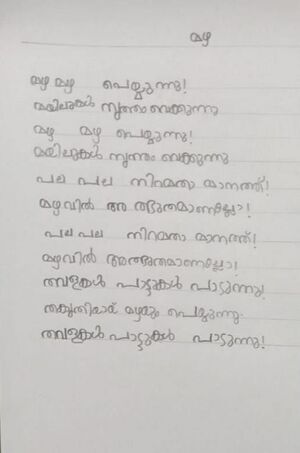 മഴ
മഴ മഴ പെയ്യുന്നു!
മയിലുകൾ നൃത്തം വെക്കുന്നു
മഴ മഴ പെയ്യുന്നു!
മയിലുകൾ നൃത്തം വെക്കുന്നു
പല പല നിറമതാ മാനത്ത്!
മഴവിൽ അത്ഭുതമാണല്ലോ!
പല പല നിറമതാ മാനത്ത്!
മഴവിൽ അത്ഭുതമാണല്ലോ!
തവളകൾ പാട്ടുകൾ പാടുന്നു!
തകൃതിയായ് മഴയും പെയ്യുന്നു.
തവളകൾ പാട്ടുകൾ പാടുന്നു!